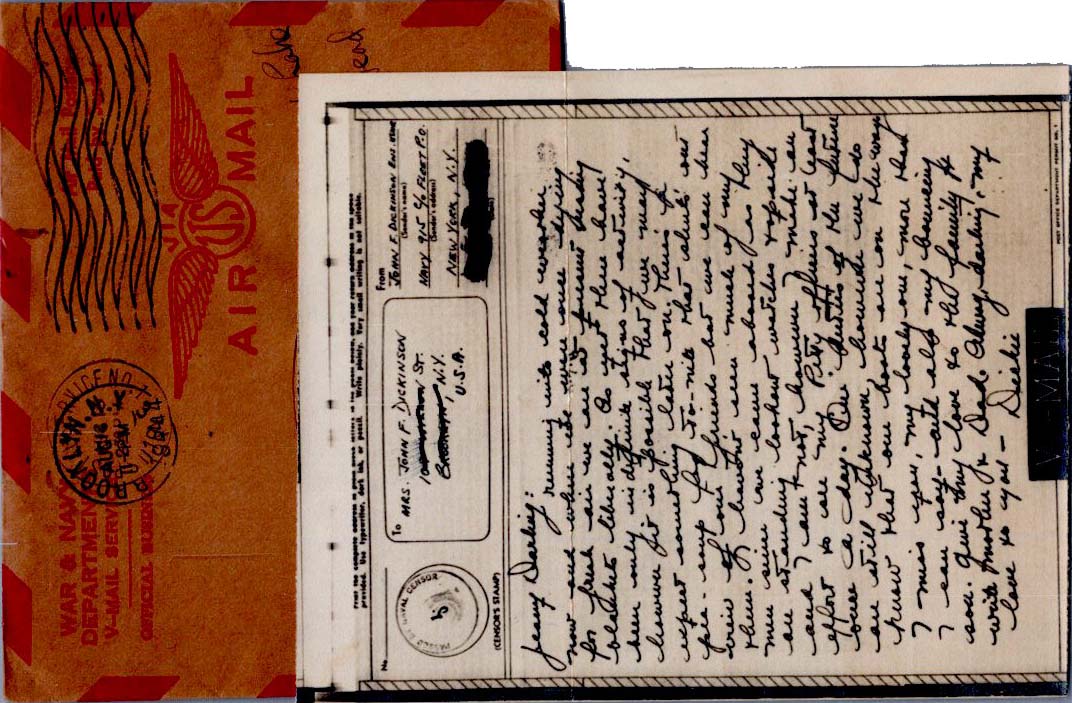 WAR & NAVY
DEPARTMENTS
V-MAIL SERVICE
OFFICIAL BUSINESS
BROOKLYN
AUG 18
VIA
AIR MAIL
US
Print the complete address in plain block letters in the panel below, and your return address in the space
provided. Use typewriter, dark ink, or pencil. Write plainly. Very small writing is not suitable.
No.
PASSED BY NAVAL CENSOR
(CENSOR'S STAMP)
To
MRS. JOHN F. DICKINSON
ST.
N.Y.
U.S.A.
From
JOHN F. DICKINSON
(Sender's name)
NAVY 915 C/O FLEET P.O.
(Sender's address)
NEW YORK, N.Y.
Darling:
running into cold weather
now and when
for fresh air we are at present
liberally. As yet there have
been only indefinite signs of activity,
however it is possible that we may
expect something later on. There is
to-nite that about our
of our friends but we can hear
them. I haven't seen much of my
men since we came aboard as they
are standing lookout watches topside
and I am not, however I make an
effort to see my Petty officers at least
once a day. Our duties of the future
are still unknown however we do
know that our boats are on the way
I miss you, my lovely one, more than
I can say - and also my bouncing
son. Give my love to the family &
write Mother & Dad. Always, darling, my
love to you - Dickie
V-MAIL
POST OFFICE DEPARTMENT PERMIT NO. 1